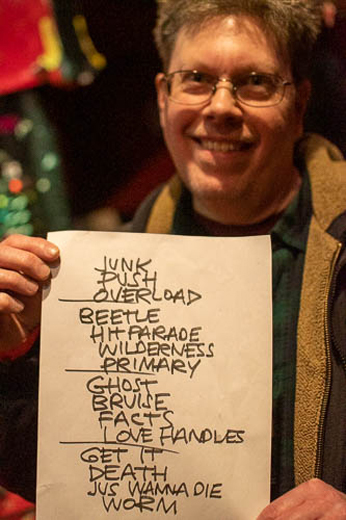 JUNK
PUSH
OVERLOAD
BEETLE
HIT PARADE
WILDERNESS
PRIMARY
GHOST
BRUISE
FACTS
LOVE HANDLES
GET IT
DEATH
JUS WANNA DIE
WORM